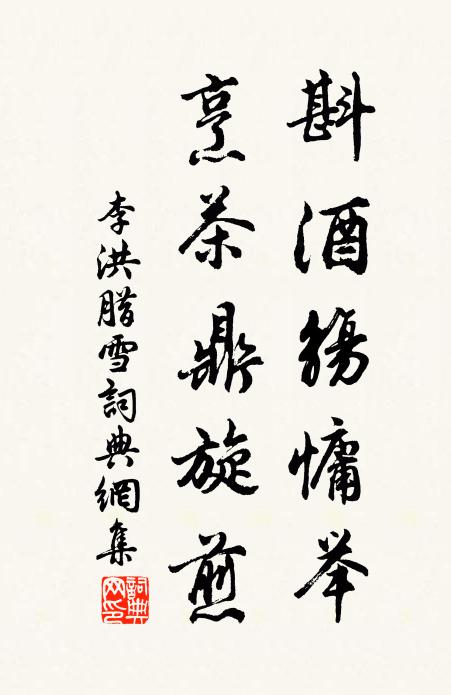 斟酒觴慵举
烹茶鼎旋煎
李洪腊雪詞典網集
詞典网印